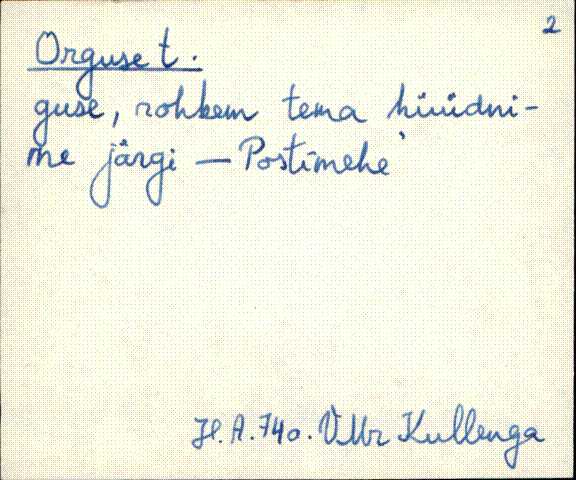 2
Orguse t.
guse, rohkem tema hüüdni-
me järgi — Postimehe'
H.A.740. VMr Kullenga